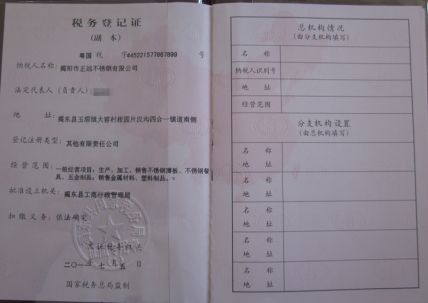 税务登记证
(副本)
粤国 税 字445221577867899 号
纳税人名称: 揭阳市正远不锈钢有限公司
法定代表人(负责人):
地 址: 揭东县玉
登记注册类型: 其他有限责任公司
经营范围: 一般经营项目:生产、加工、销售不锈钢薄板、不锈钢餐
具、五金制品;销售金属材料、塑料制品。
批准设立机关: 揭东县工商行政管理局
扣缴义务: 依法确定
发证税务机关
二〇一 年七月五日
国家税务总局监制
总机构情况
(由分支机构填写)
名 称
纳税人识别号
地 址
经营范围
分支机构设置
(由总机构填写)
名 称
地 址
名 称
地 址
名 称
地 址
名 称
地 址
名 称
地 址